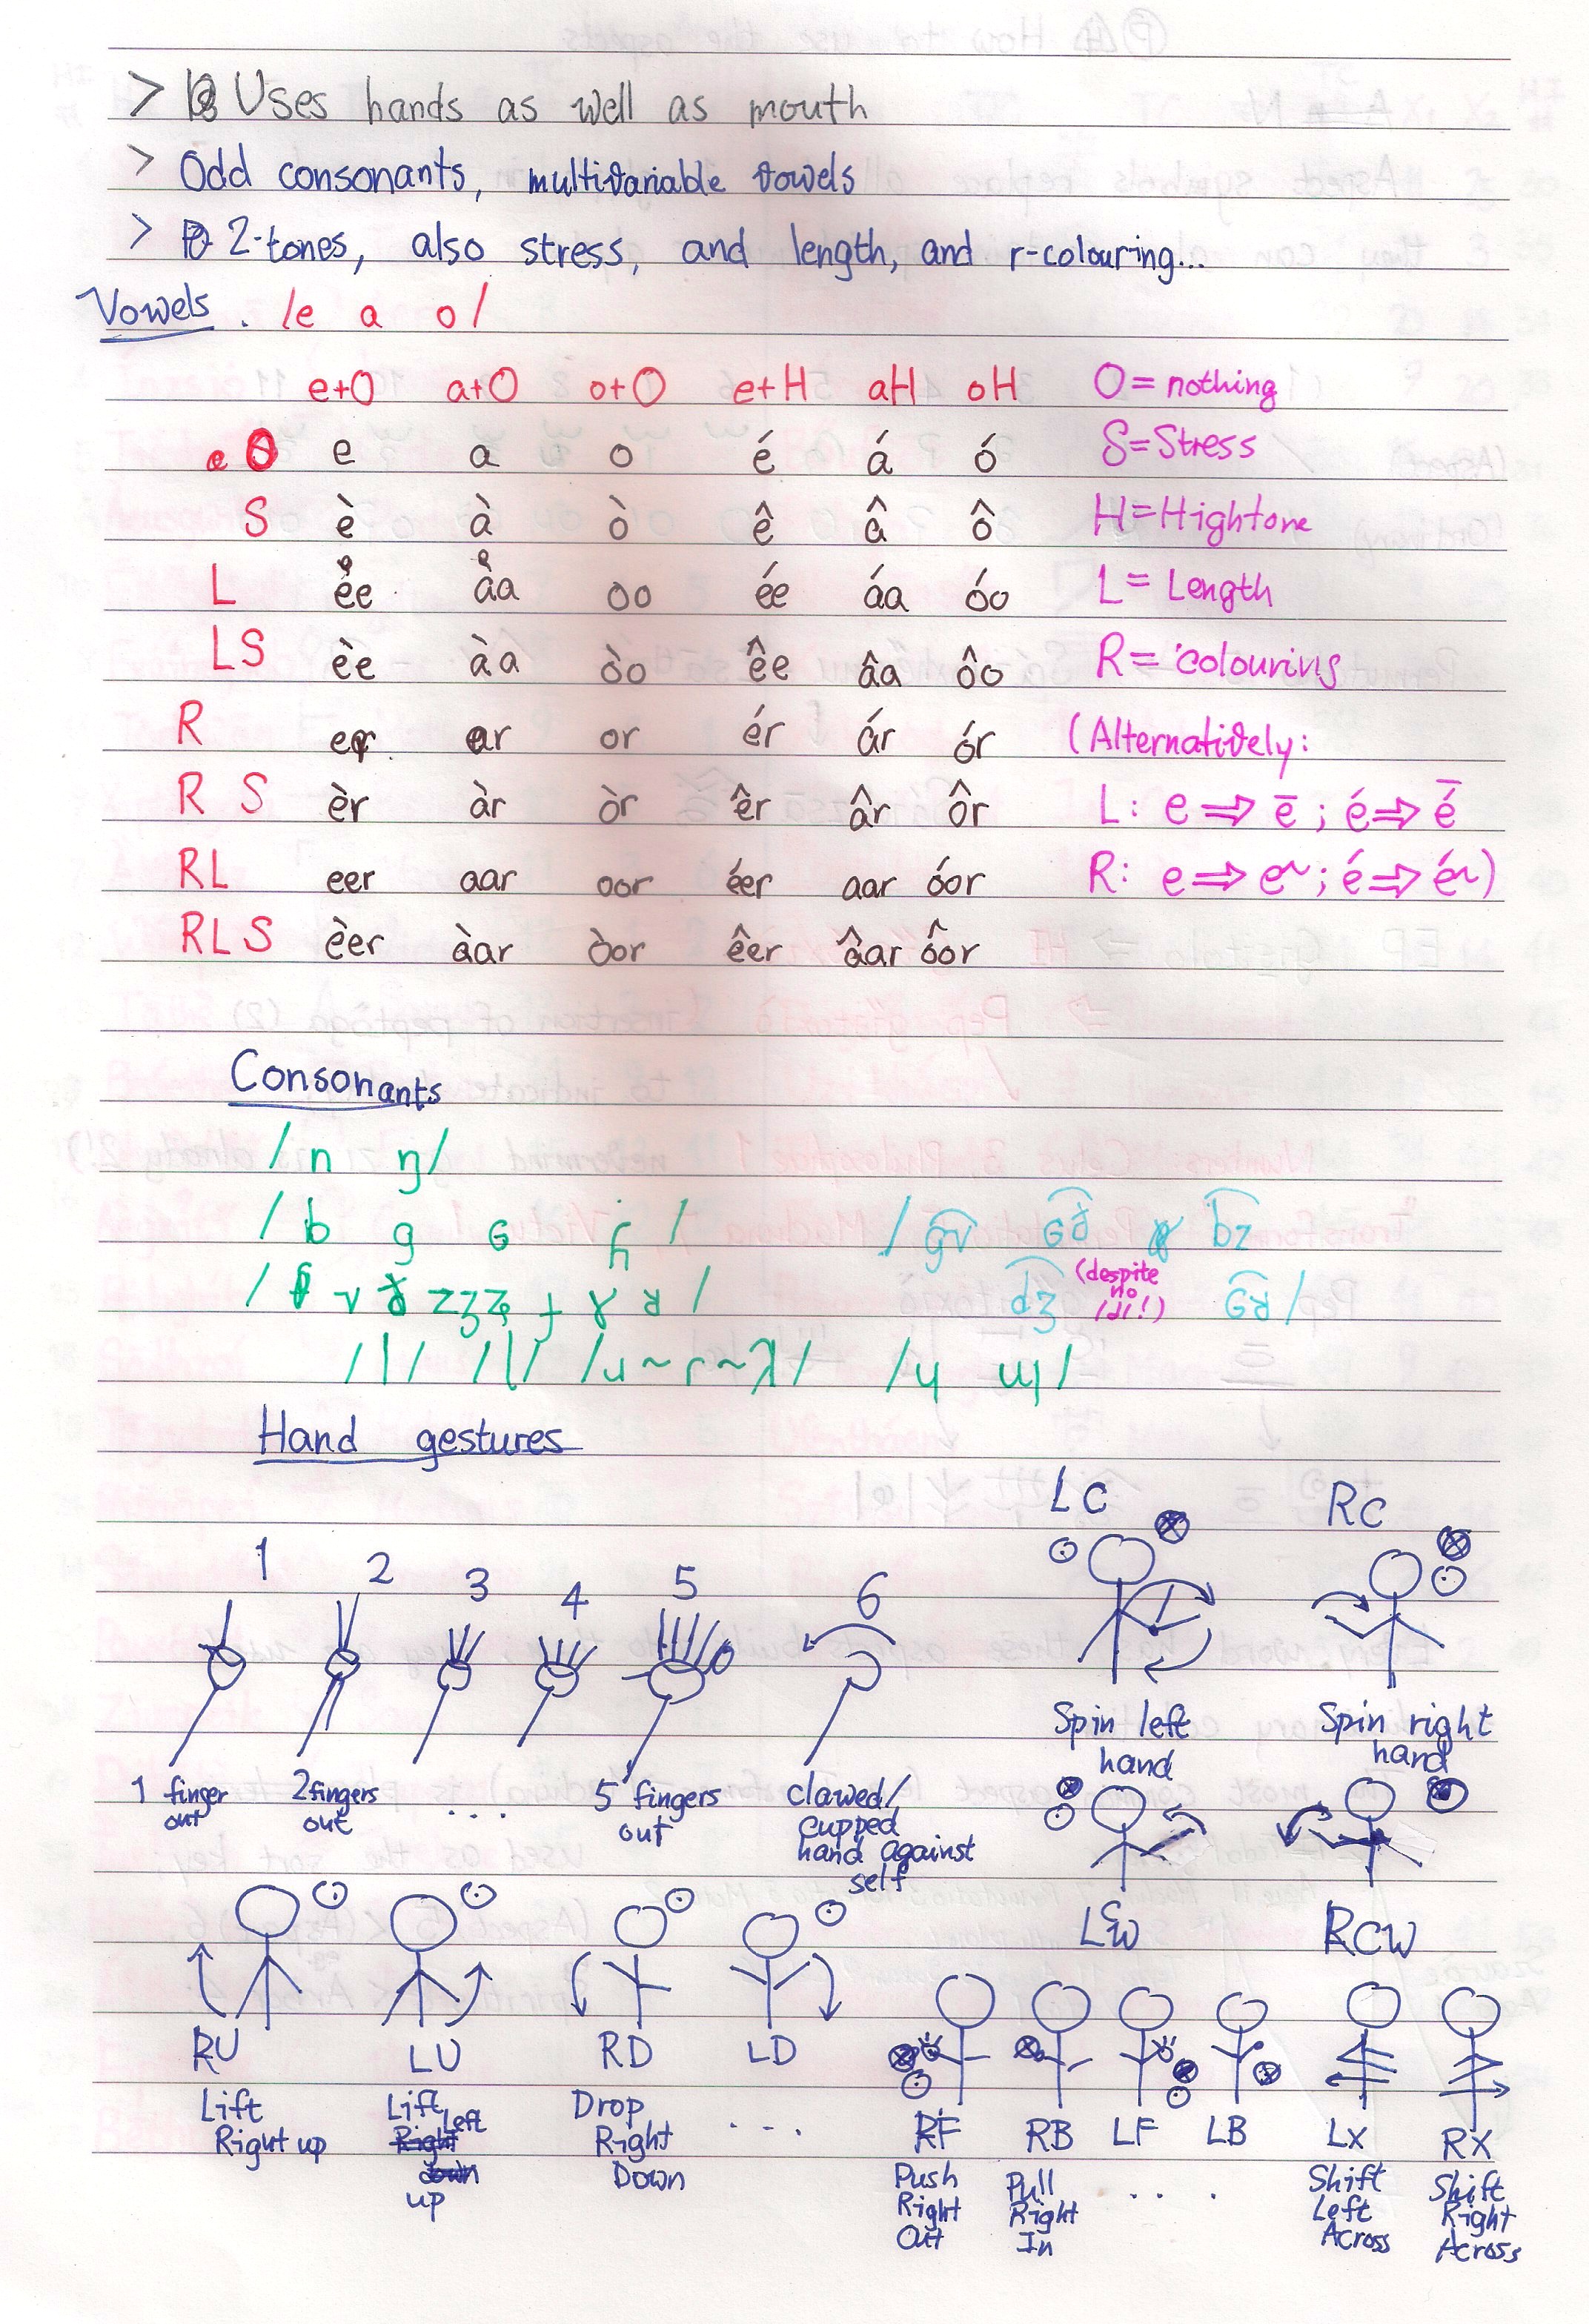 > Uses hands as well as mouth
> Odd consonants, multivariable vowels
> 2-tones, also stress, and length, and r-colouring...
Vowels. /e a o/
e+O a+O o+O e+H aH oH O=nothing
O e a o é á ó S=Stress
S è à ò ê â ô H=Hightone
L ee aa oo ée áa óo L=Length
LS èe àa òo êe âa ôo R='colouring
R er ar or ér ár ór (Alternatively:
R S èr àr òr êr âr ôr L: e ⇒ ē ; é ⇒ ḗ
RL eer aar oor éer aar óor R: e ⇒ e~ ; é ⇒ é~)
RLS èer àar òor êer âar ôor
Consonants
/n ŋ/
/b g ɢ /
(despite
no
/d/!)
Hand gestures
LC RC
1 2 3 4 5 6
Spin left
hand
Spin right
hand
1 finger
out
2 fingers
out
....
5 fingers
out
clawed/
cupped
hand against
self
LCW RCW
RU LU RD LD
RF RB LF LB LX RX
Lift
Right up
Lift
Left
up
Drop
Right
Down
...
Push
Right
Out
Pull
Right
In
...
Shift
Left
Across
Shift
Right
Across